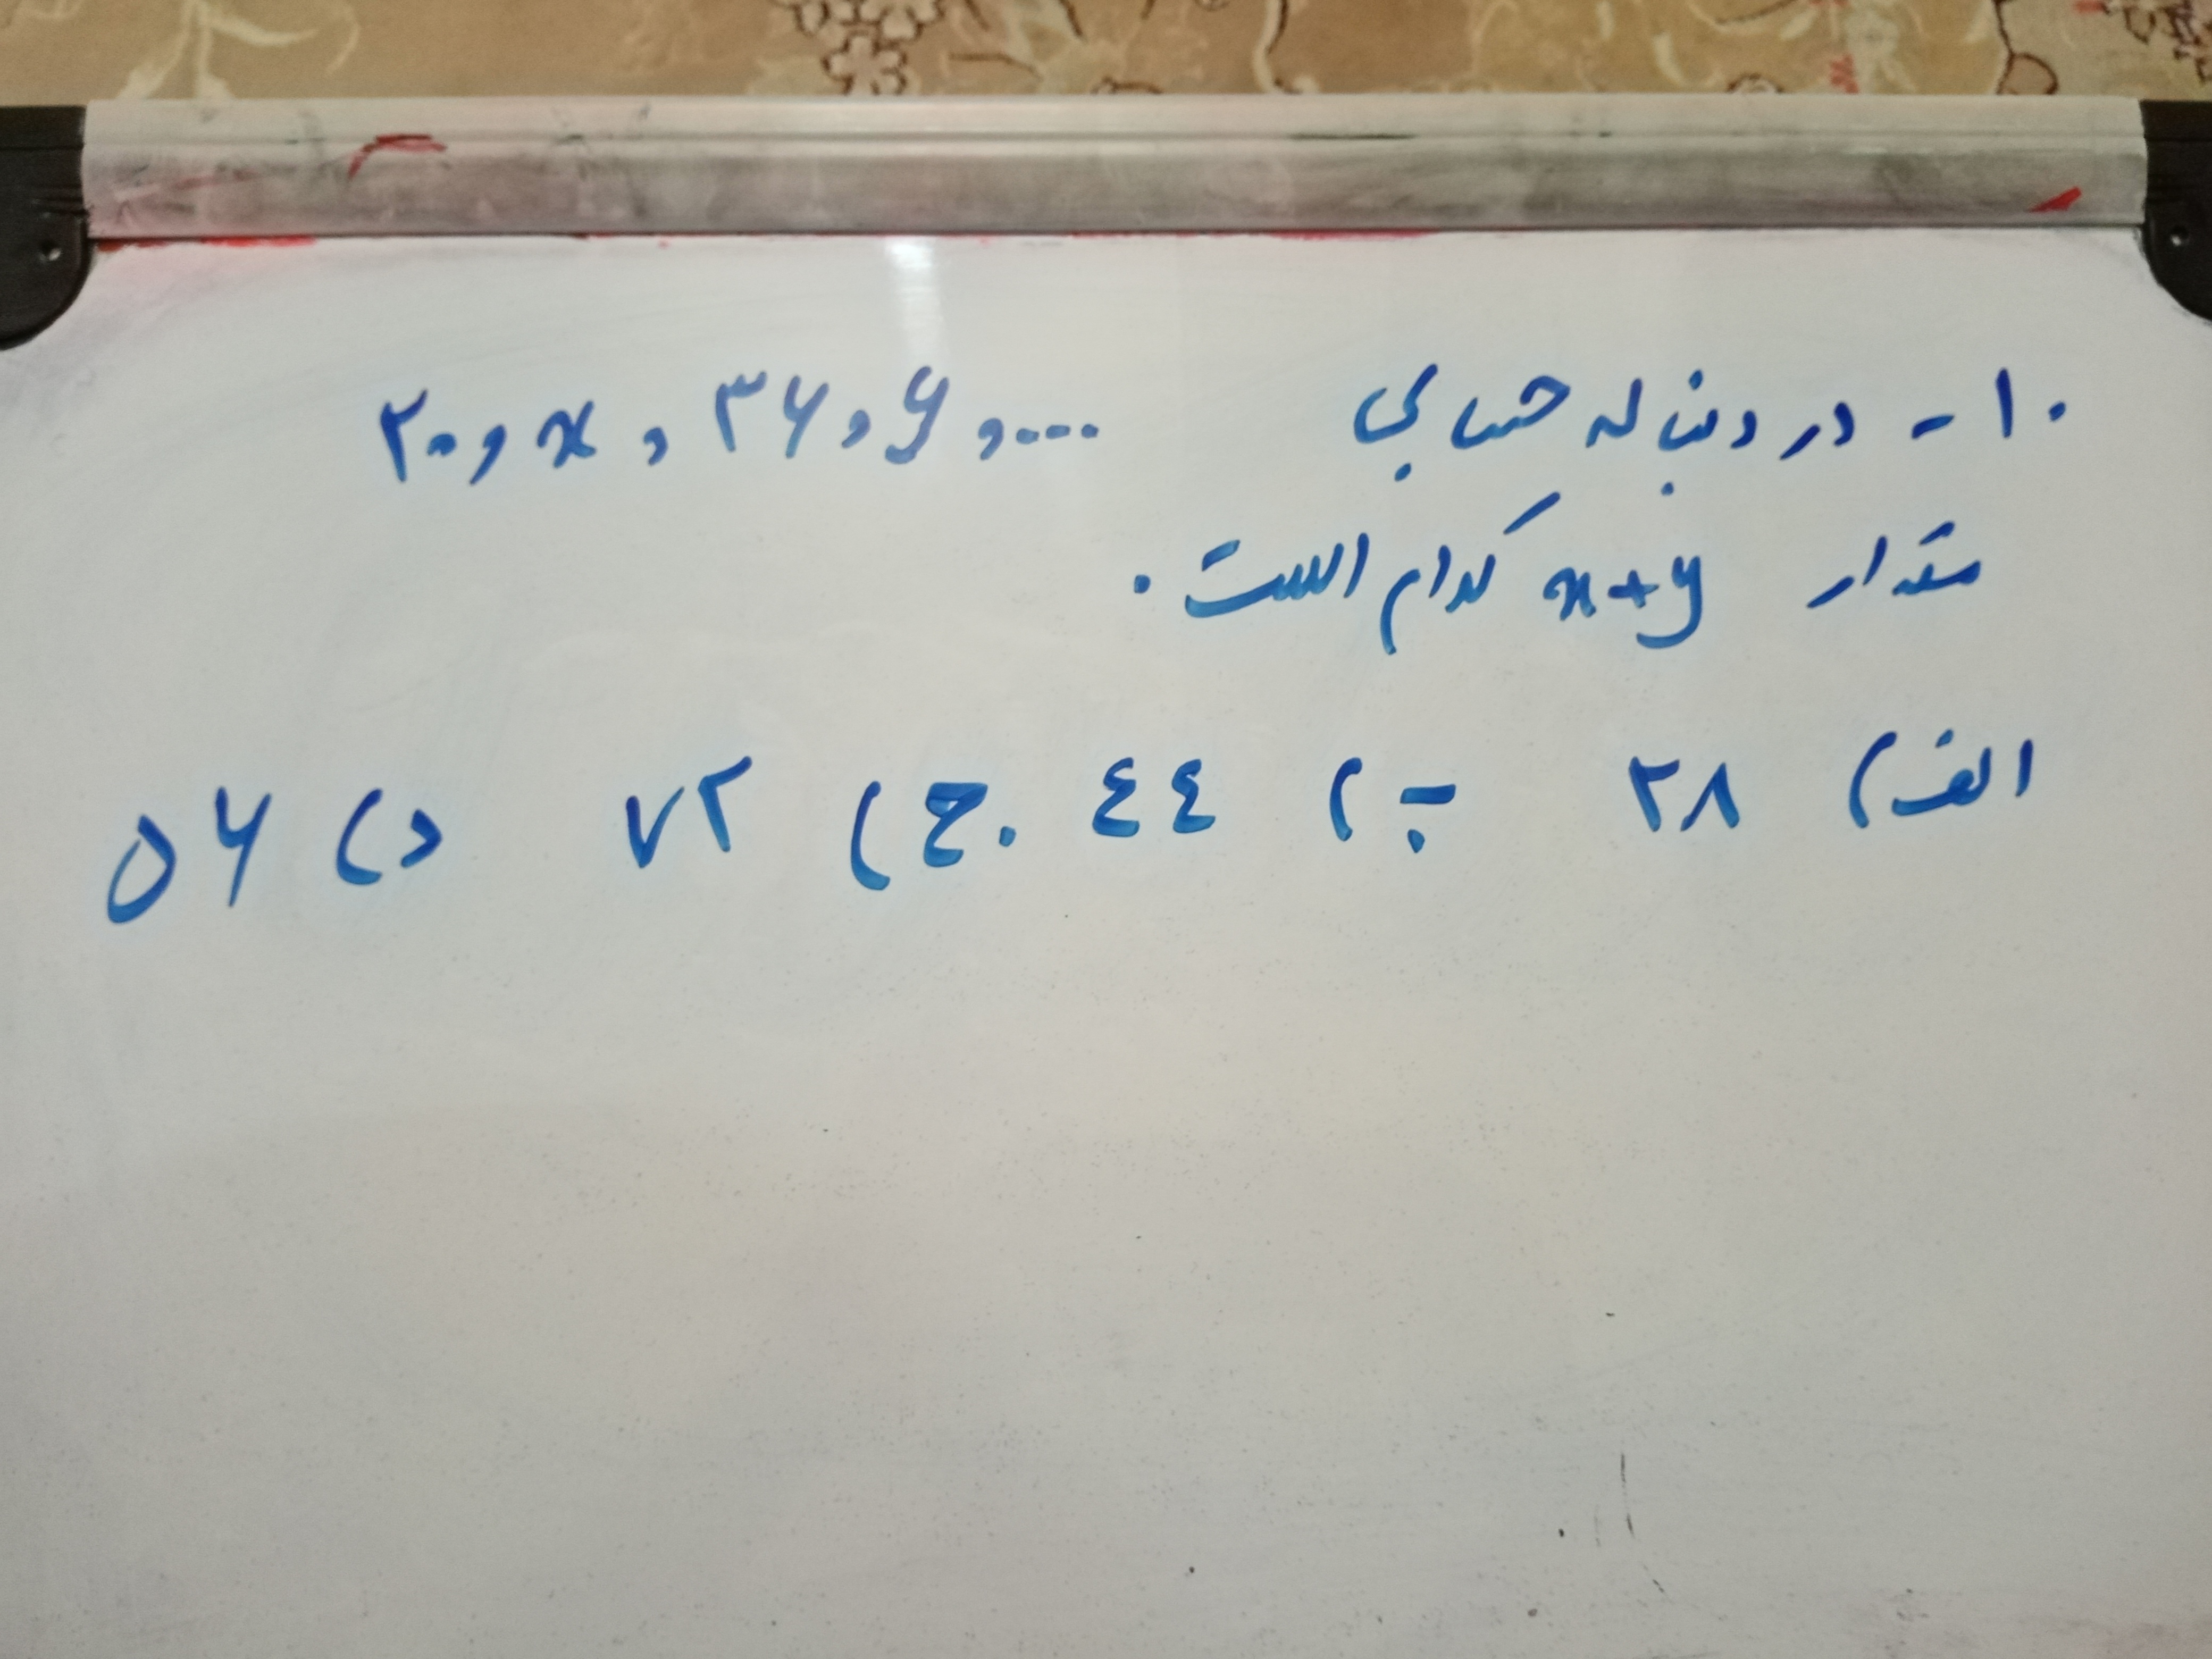 ۱۰- در دنباله حسابی ۲۰, x, ۳۶, y, ....
مقدار x+y کدام است.
الف) ۲۸ ب) ٤٤ ج) ۷۲ د) ۵۶